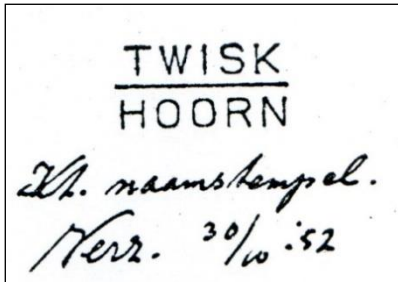 TWISK
HOORN
Kl. naamstempel.
Verz. 30/10 '52